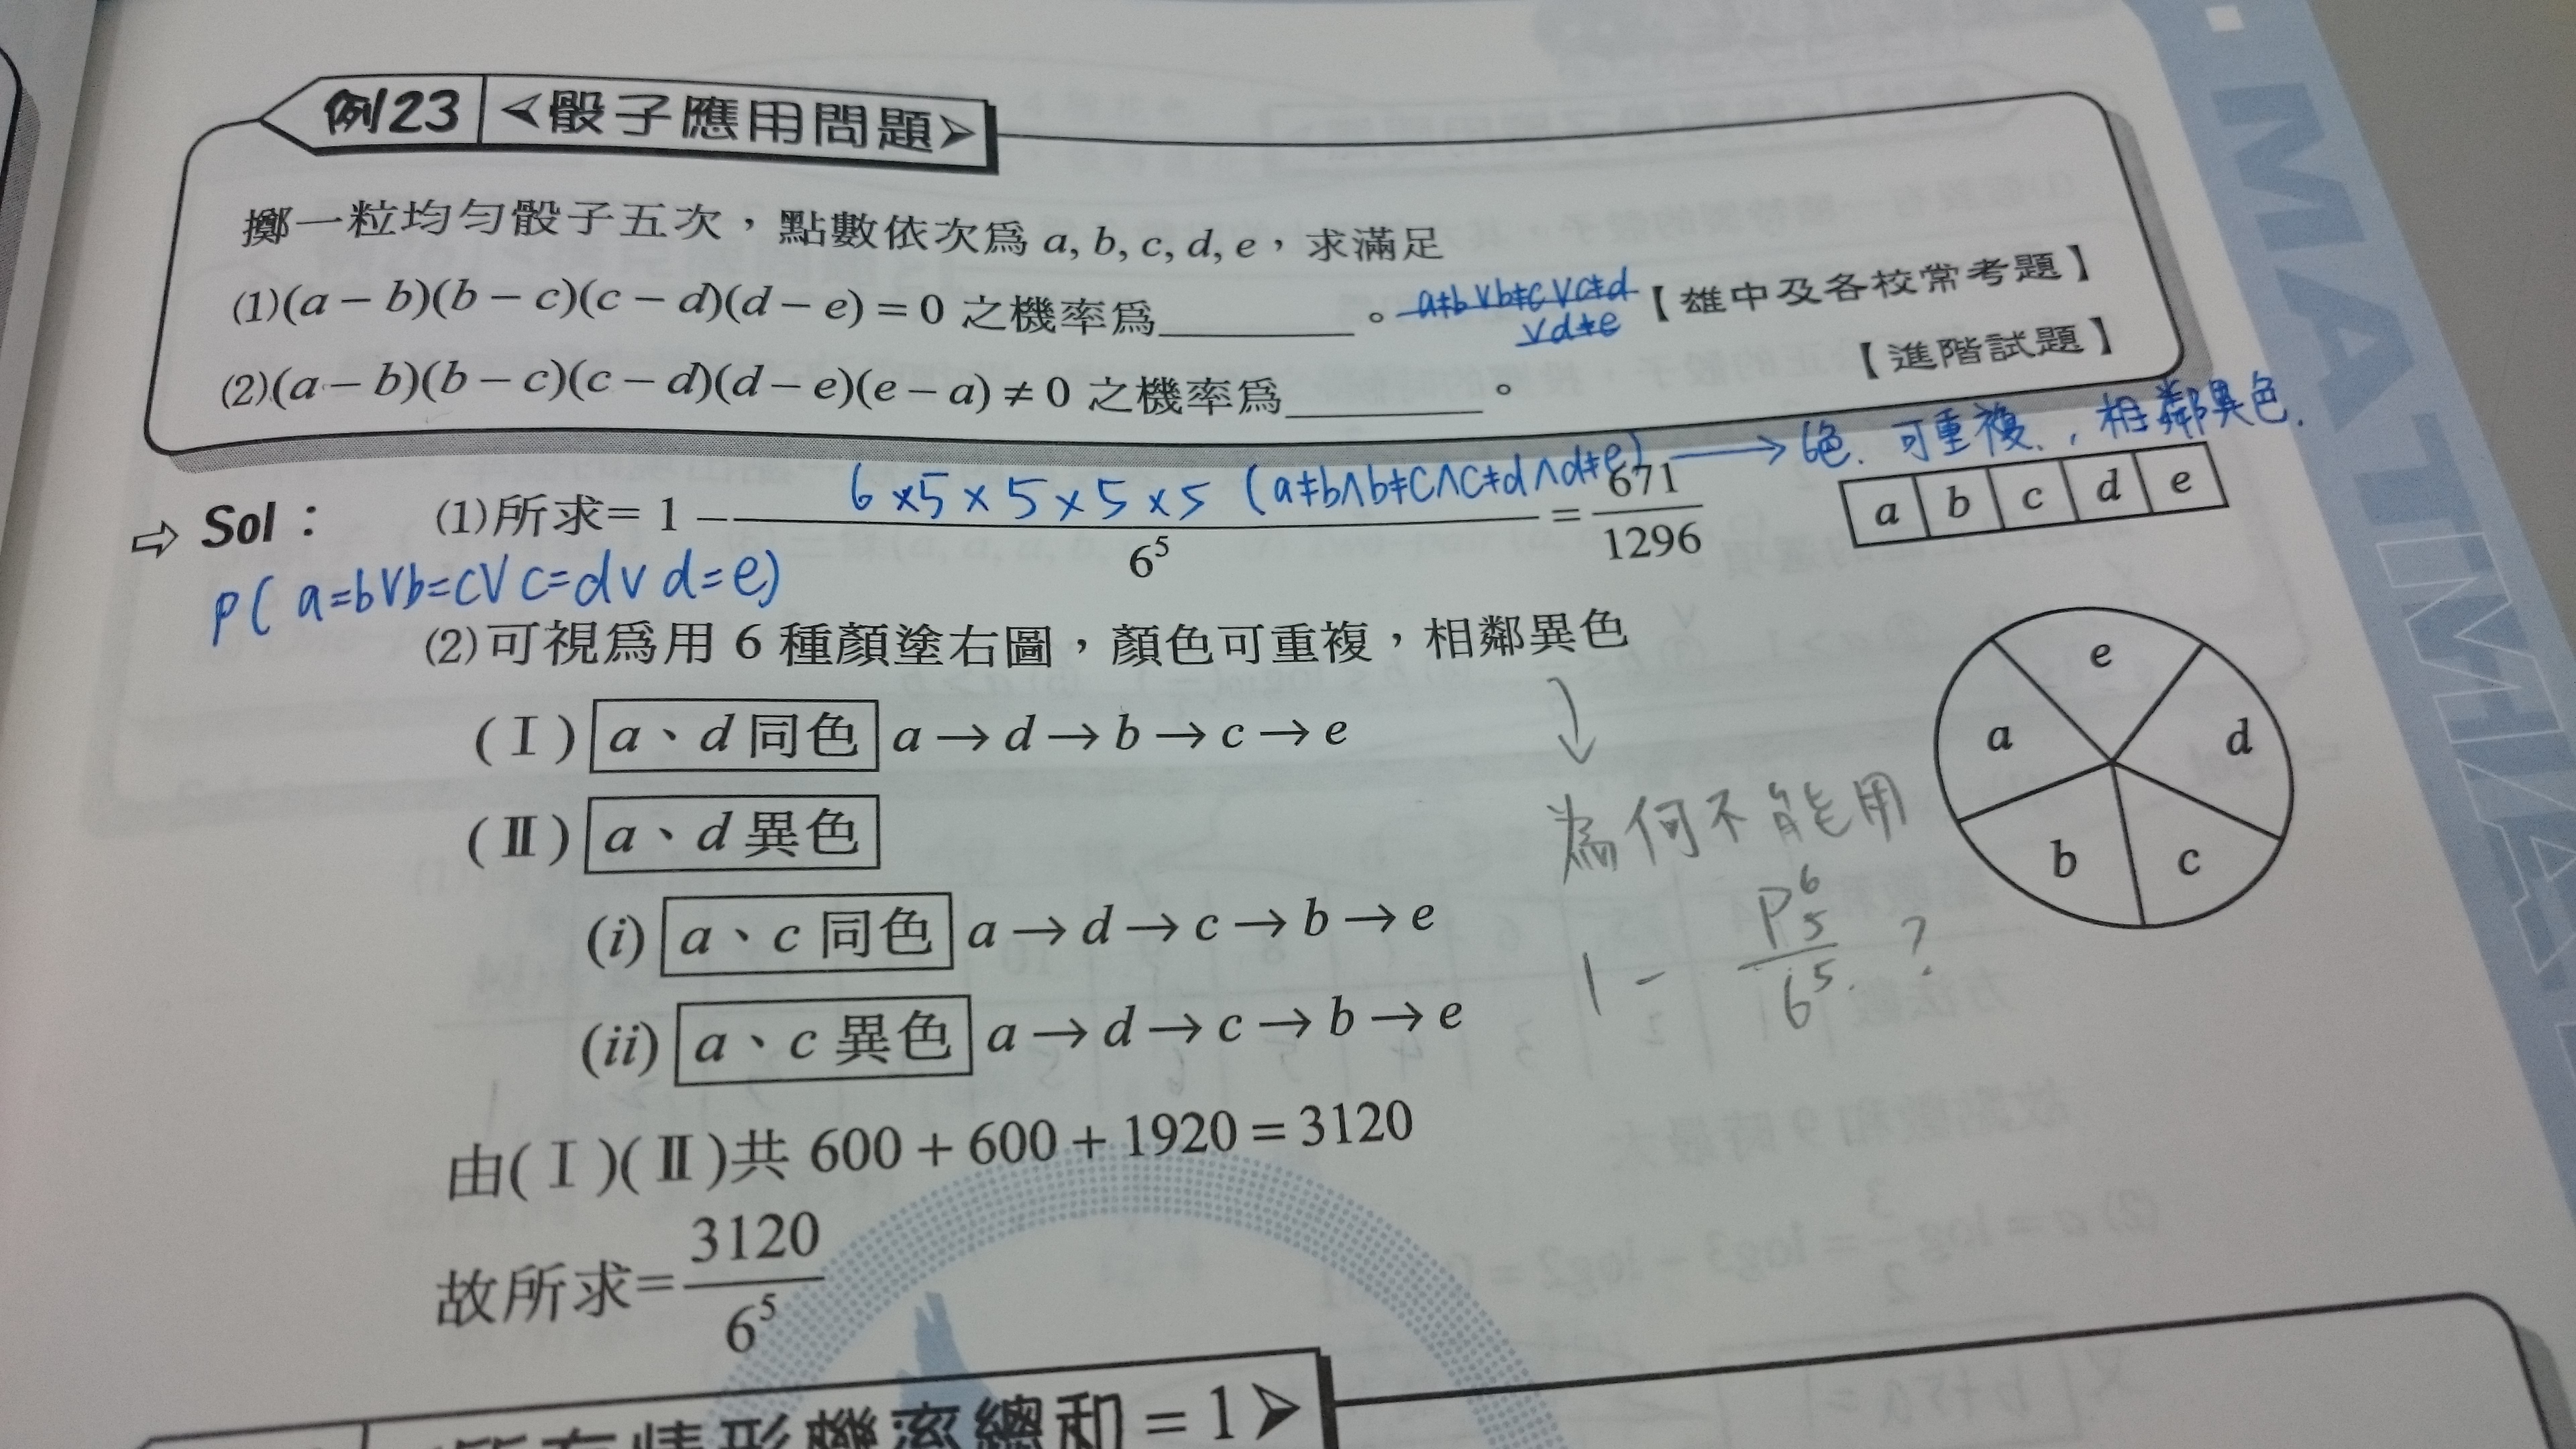 例23 <骰子應用問題>
擲一粒均勻骰子五次，點數依次爲 a, b, c, d, e，求滿足
(1)(a − b)(b − c)(c − d)(d − e) = 0 之機率爲________。 a≠b∨b≠c∨c≠d 【雄中及各校常考題】
∨d≠e
(2)(a − b)(b − c)(c − d)(d − e)(e − a) ≠ 0 之機率爲________。 【進階試題】
6×5×5×5×5 (a≠b∧b≠c∧c≠d∧d≠e) → 6色. 可重複., 相鄰異色.
⇨ Sol： (1)所求= 1 − ―― / 6⁵ = 671/1296
a b c d e
P( a=b∨b=c∨c=d∨d=e)
(2)可視爲用 6 種顏塗右圖，顏色可重複，相鄰異色
(Ⅰ) a、d 同色 a → d → b → c → e
(Ⅱ) a、d 異色
(i) a、c 同色 a → d → c → b → e
(ii) a、c 異色 a → d → c → b → e
由(Ⅰ)(Ⅱ)共 600 + 600 + 1920 = 3120
故所求= 3120/6⁵
e
a d
b c
為何不能用
1 − P⁶₅/6⁵ ?
情形機率總和 = 1>
MATH